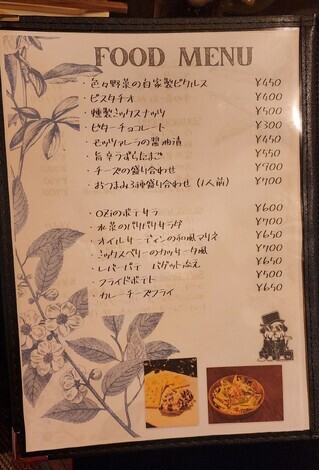 FOOD MENU
・色々野菜の自家製ピクルス ¥450
・ピスタチオ ¥400
・燻製ミックスナッツ ¥500
・ビターチョコレート ¥300
・モッツァレラの醤油漬 ¥450
・旨辛うずらたまご ¥550
・チーズの盛り合わせ
・おつまみ3種盛り合わせ (1人前)
・OZiのポテサラ ¥600
・水菜のパリパリサラダ ¥700
・オイルサーディンの和風マリネ ¥650
・ミックスベリーのカッサータ風 ¥700
・レバーパテ バゲット添え ¥650
・フライドポテト ¥500
・カレーチーズフライ ¥650